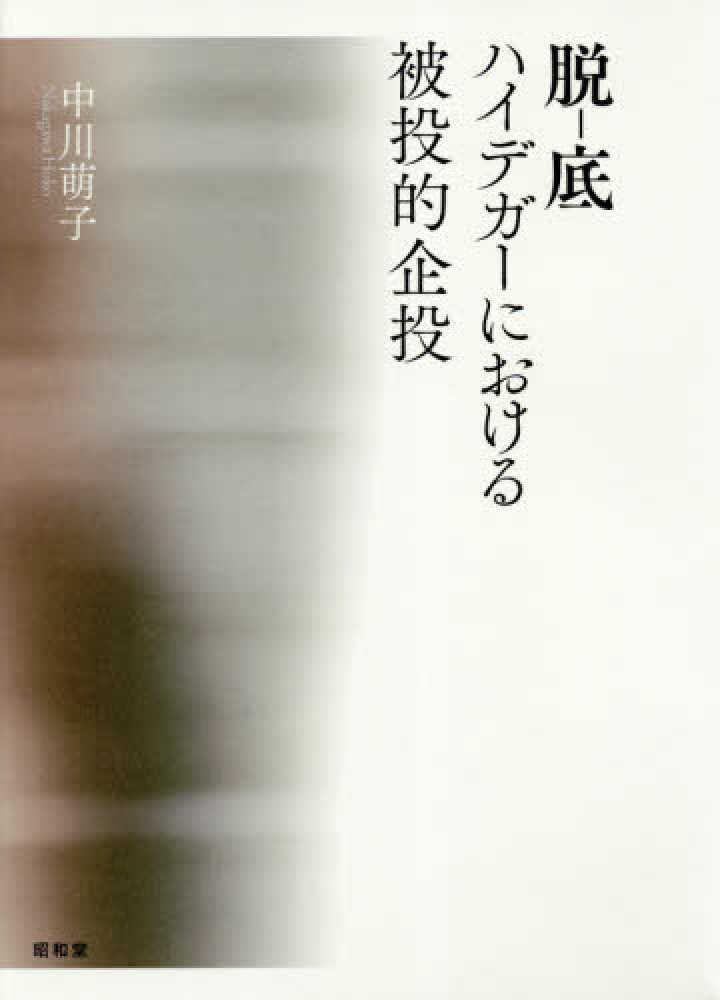 脱-底
ハイデガーにおける
被投的企投
中川萌子
昭和堂